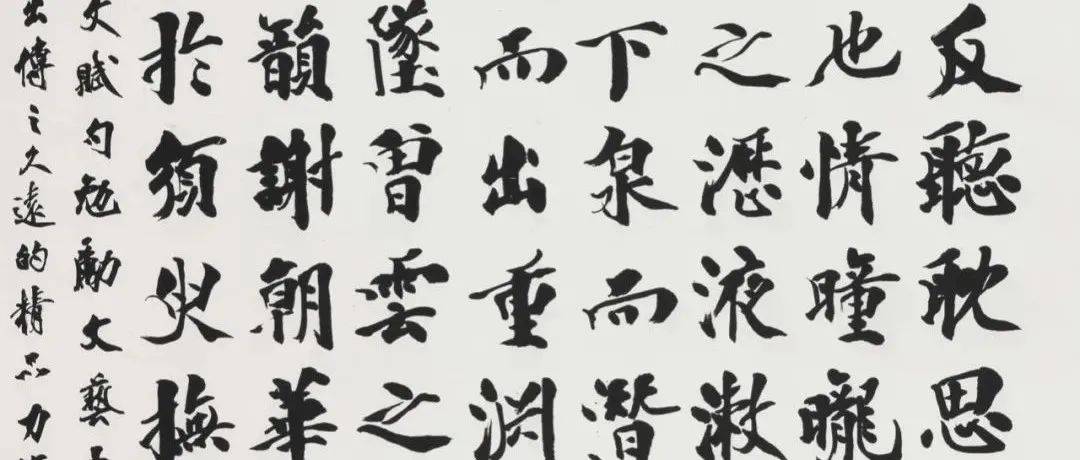 反聽耽思
也情曈曨
之瀝液漱
下泉而潛
而出重淵
墜曾雲之
韻謝朝華
於須臾撫
文賦句勉勵文藝
出傳之久遠的精品力